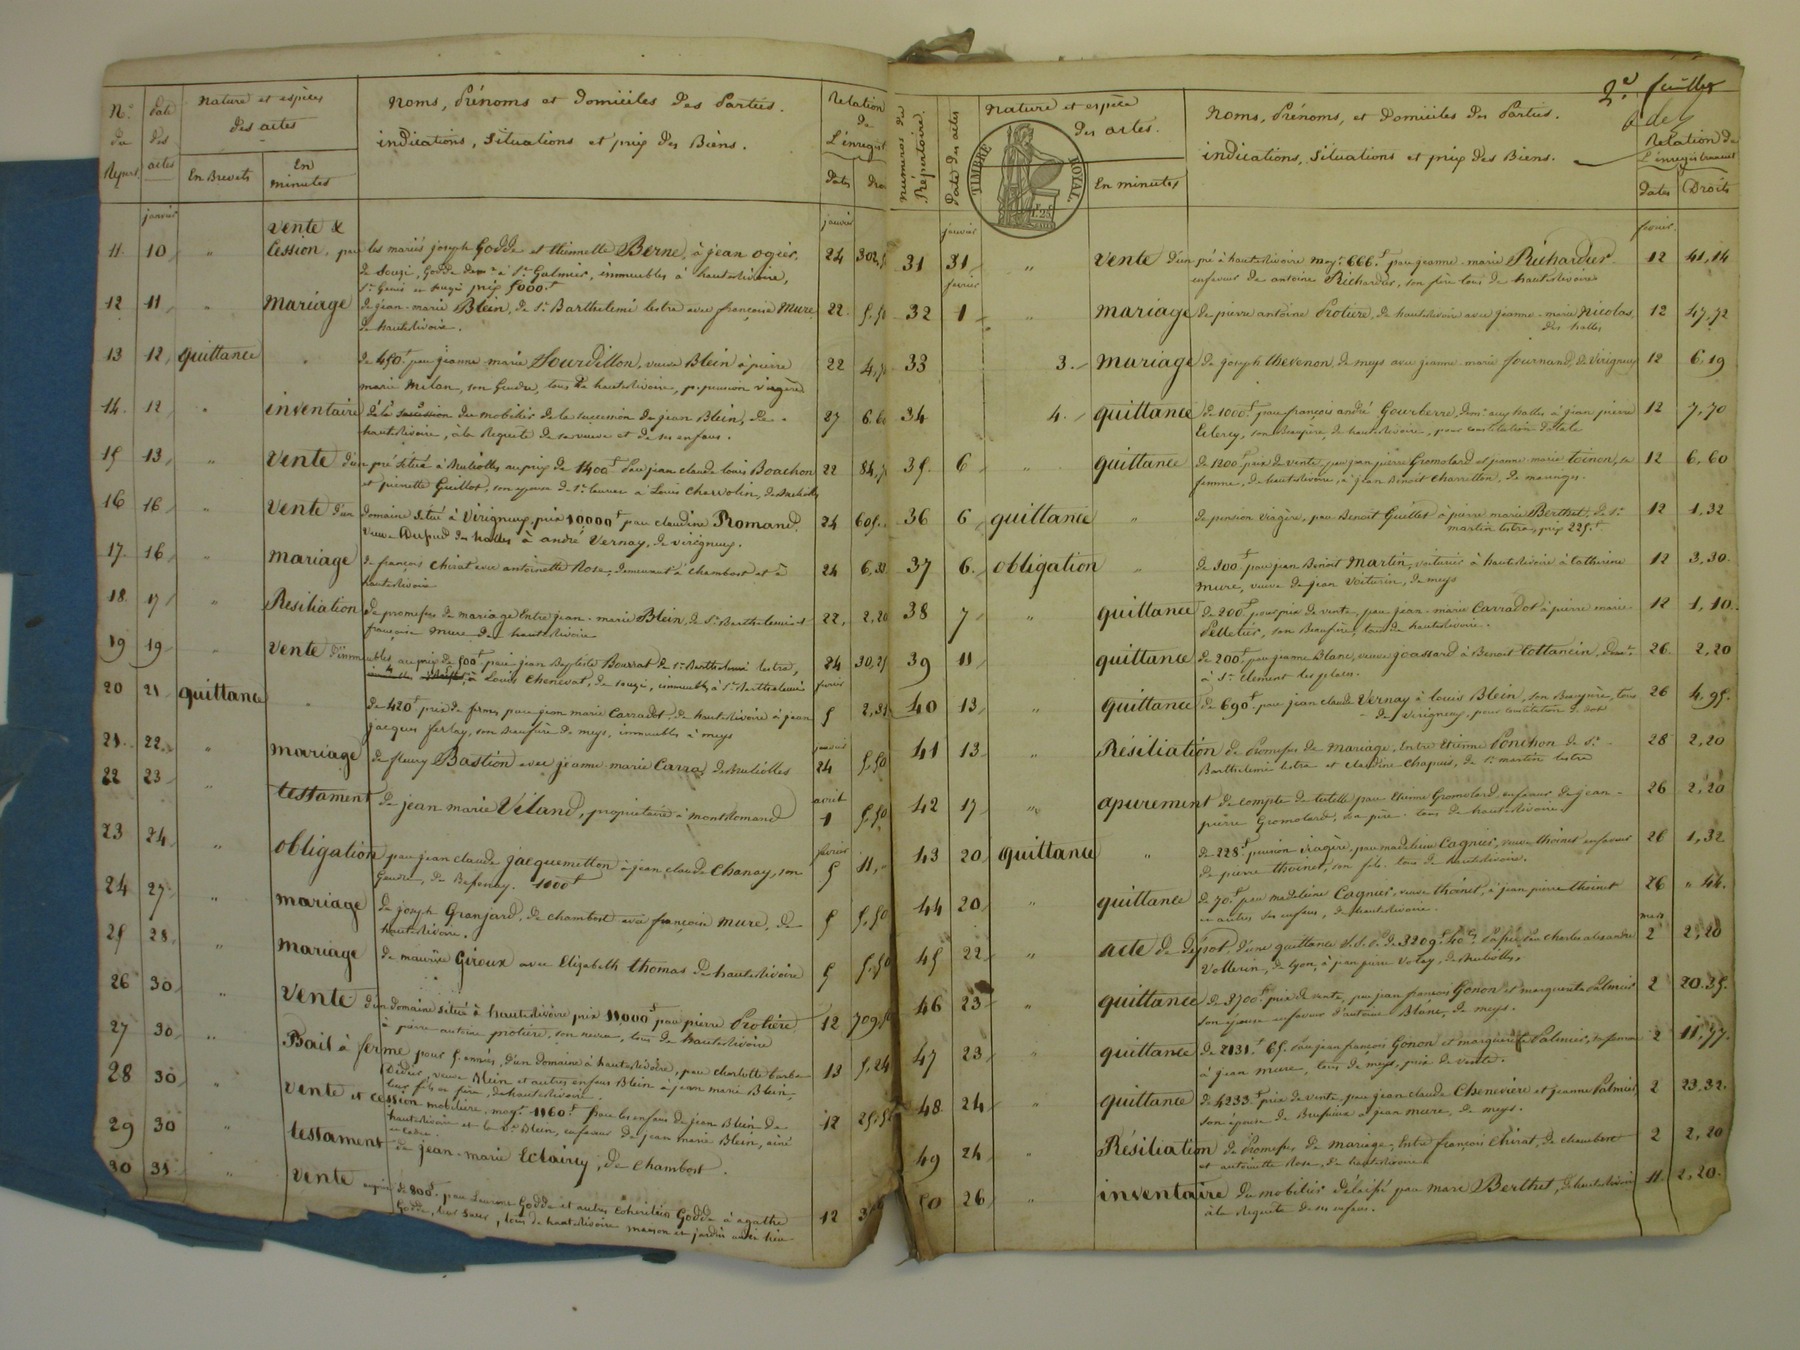 N.º du Repert. date des actes Nature et espèces des actes
En Brevets En minutes
Noms, Prénoms et Domiciles des Parties.
indications, Situations et prix des Biens.
Relation de L'enregist
dates
janvier janvier
11 10 " vente & Cession, par les mariés joseph Goddé et Etiennette Berne, à jean ogier,
de Souzi, Goddé demt à St Galmier, immeubles à hauterivoire, 24
St Genis et souzi prix 5000f
12 11 " Mariage de jean-marie Blein, de St Barthelemi lestra avec françoise Mure 22
de hauterivoire.
13 12 quittance " de 450f par jeanne marie Sourdillon, veuve Blein à pierre 22
marie Milan, son Gendre, tous de hauterivoire, p. pension viagère
14. 12 " inventaire du mobilier de la succession de jean Blein, de
hauterivoire, à la Requete de sa veuve et de ses enfans. 27
15 13 " Vente d'un pré situé à Brulioles au prix de 1400f par jean claude louis Boachon 22
et pierrette Guillot, son epouse de St laurent à Louis Chervolin, de Brulioles
16 16 " Vente d'un domaine situé à Virigneux, prix 10000f par claudine Romand, 24
veuve Dupud des halles à andré Vernay, de virigneux.
17. 16 " Mariage de françois Chirat avec antoinette Rose, demeurant à chambost et à 24
hauterivoire
18 17 " Resiliation de promesses de mariage Entre jean-marie Blein, de St Barthelemi et 22, 2,20
françoise Mure de hauterivoire
19 19 " Vente d'immeubles au prix de 500f par jean Baptiste Bourrat de St Barthelemi lestra, 24
à Louis Chenevat, de souzi, immeubles à St Barthelemi
fevrier
20 21 quittance " de 420f prix de ferme, par jean marie Carradot, de hauterivoire à jean 5
jacques ferlay, son Beaufrère de meys, immeubles à meys
janvier
21. 22. " mariage de fleury Bastion avec jeanne-marie Carra, de Brulioles 24 5,50
22 23 " testament de jean marie Véland, propriétaire à montromand avril 1 5,50
fevrier
23 24 " obligation par jean claude jacquemetton à jean claude Chanay, son 5 11,
Gendre, de Bessenay. 1000f
24 27 " mariage de joseph Granjard, de chambost avec françoise mure, de 5 5,50
hauterivoire.
25 28. " mariage de maurice Giroux avec Elizabeth thomas de hauterivoire 5 5,50
26 30 " Vente d'un domaine situé à hauterivoire prix 11,000f par pierre Protière 12
à pierre-antoine protière, son neveu, tous de hauterivoire
27 30 " Bail à ferme pour 5 années, d'un domaine à hauterivoire, par charlotte barbe 13 5,24
Didier, veuve Blein et autres enfans Blein à jean marie Blein,
leur fils et frère, de hauterivoire.
28 30 " Vente et cession mobilière moyt 1160f par les enfans de jean Blein de 12
hauterivoire et la Ve Blein, en faveur de jean marie Blein, ainé
29 30 " testament de jean-marie Eclaircy, de Chambost.
30 31 " Vente de 800f par Laurent Goddé et autres Cohéritiers Goddé à agathe 12
Goddé, leur sœur, tous de hauterivoire maison et jardin audit lieu
2e feuillet
numéros du Répertoire. Date des actes Nature et espèce des actes.
TIMBRE ROYAL.
1F.25C
En minutes
Noms, Prénoms, et Domiciles des Parties.
indications, Situations et prix des Biens.
Relation de L'enregistrement
dates Droits
janvier fevrier
31 31 " Vente d'un pré à hauterivoire moyt 666f par jeanne-marie Richardier 12 41,14
en faveur de antoine Richardier, son frère tous de hauterivoire
fevrier
32 1 " mariage de pierre antoine Protière, de hauterivoire avec jeanne-marie Nicolas 12 47,72
des halles
33 3. mariage de joseph thevenon de meys avec jeanne marie fournand, de Virigneux 12 6,19
34 4. quittance de 1000f par françois andré Gourberre, demt aux halles à jean pierre 12 7,70
Lelercy, son Beaupère, de hauterivoire, pour constitution dotale
35. 6 " quittance de 1200f prix de vente, par jean pierre Gromolard et jeanne-marie toinon, sa 12 6,60
femme, de hauterivoire, à jean Benoit Charretton, de maringes.
36 6 quittance " de pension viagère, par Benoit Guillot à pierre marie Berthet, de St 12 1,32
martin lestra, prix 225.f
37 6. obligation " de 300f par jean Benoit Martin, voiturier à hauterivoire à Catherine 12 3,30.
mure, veuve de jean Voiturin, de meys
38 7 " quittance de 200f pour prix de vente, par jean-marie Carradot à pierre marie 12 1,10.
Pelletier, son Beaufrère, tous de hauterivoire.
39 11 " quittance de 200f par jeanne Blanc, veuve joassard à Benoit tottancin, demt 26. 2,20
à St Clement les places.
40 13 " quittance de 690f par jean claude Vernay à louis Blein, son Beaupère, tous 26 4,95.
de Virigneux, pour constitution de dot
41 13 " Résiliation de Promesses de Mariage, Entre Etienne Ponchon de St 28 2,20
Barthelemi lestra et claudine Chapuis, de St martin lestra
42 17 " apurement de compte de tutelle par Etienne Gromolard en faveur de jean- 26 2,20
pierre Gromolard, son père tous de hauterivoire
43 20 Quittance " de 228f pension viagère, par madeleine Cagnier, veuve thoinet en faveur 26 1,32
de pierre thoinet, son fils tous de hauterivoire.
44 20 " quittance de 70f par madeleine Cagnier veuve thoinet, à jean pierre thoinet 26 " 44.
et autres ses enfans, de hauterivoire.
mars
45 22 " acte de depot d'une quittance S.S.P. de 3209f 40c Passée par Charles alexandre 2 2,20
Vollerin, de lyon, à jean pierre Volay, de Brulioles.
46 23 " quittance de 3700f prix de vente, par jean françois Gonon et marguerite Palmier 2 20.35.
son épouse en faveur d'antoine Blanc, de meys.
47 23 " quittance de 2131f 65. Par jean françois Gonon et marguerite Palmier, sa femme 2 11,77.
à jean mure, tous de meys, prix de vente.
48. 24 " quittance de 4233f prix de vente, par jean claude Chenevière et jeanne Palmier, 2 23,32.
son épouse de Brussieux à jean mure, de meys.
49 24 " Résiliation de Promesses de Mariage, Entre françois Chirat, de chambost 2 2,20
et antoinette Rose, de hauterivoire
50 26 " inventaire du mobilier délaissé par marie Berthet, de hauterivoire 11 2,20.
à la Requete de ses enfans.